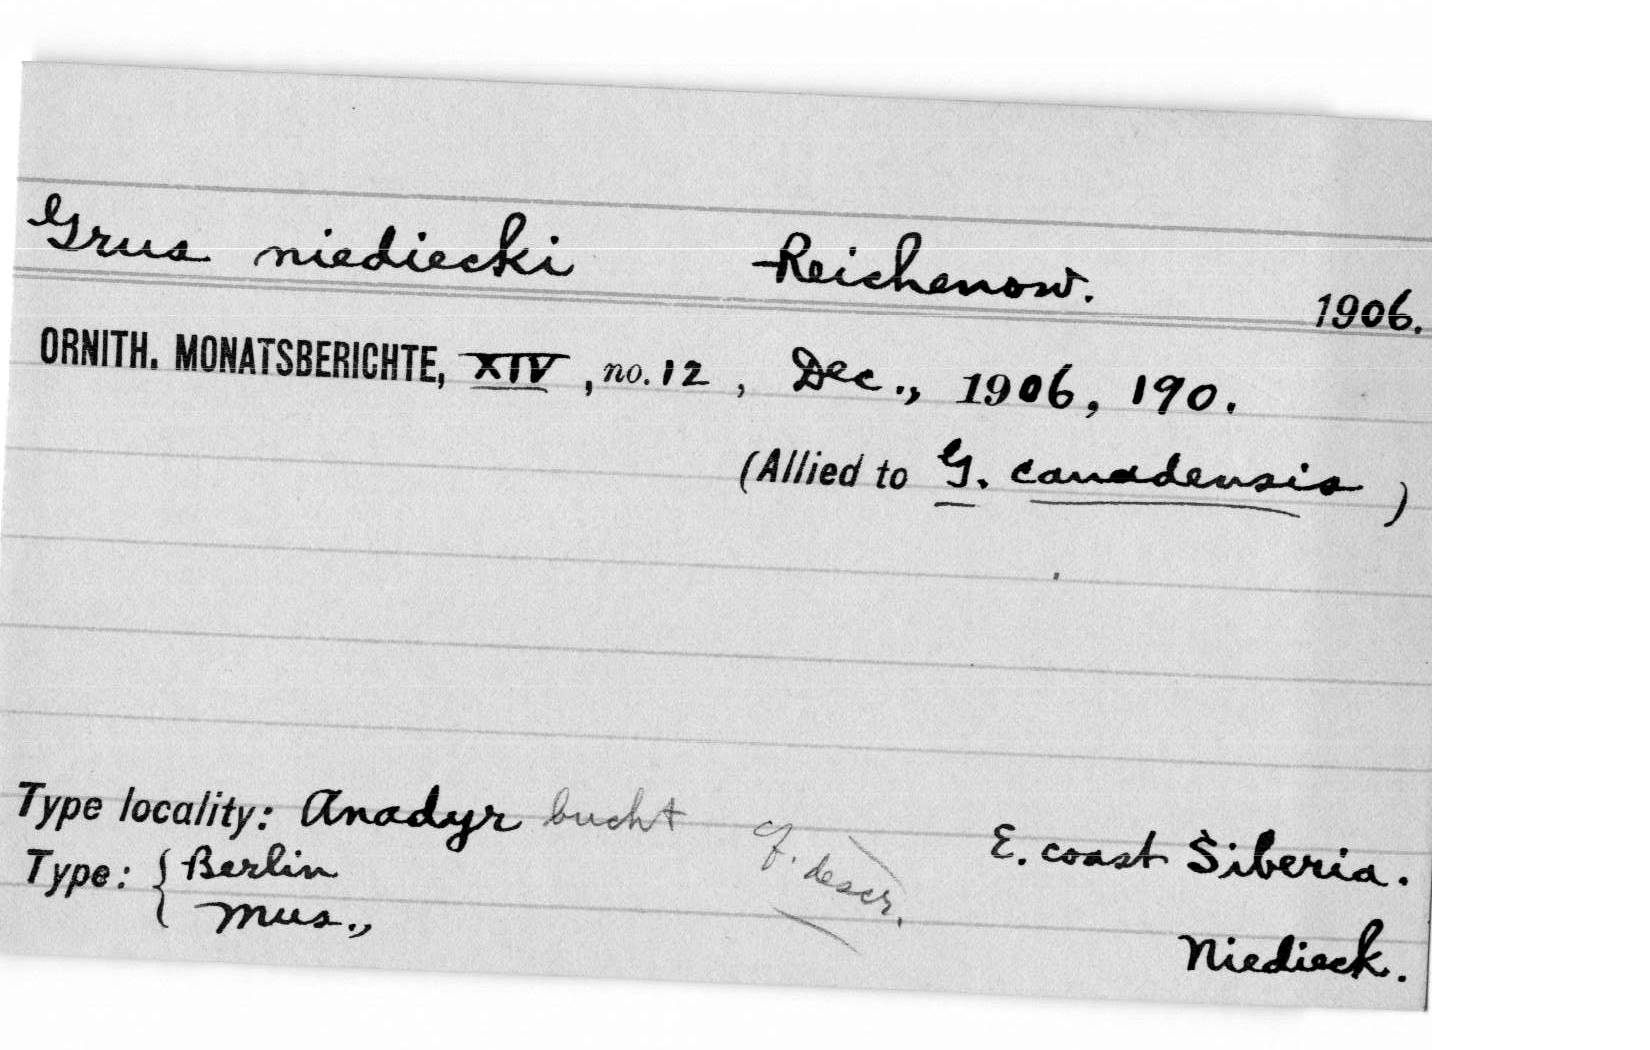 Grus niediecki Reichenow. 1906.
ORNITH. MONATSBERICHTE, XIV, no. 12, Dec., 1906, 190.
(Allied to G. canadensis)
Type locality: Anadyr bucht E. coast Siberia.
Type: { Berlin
Mus., descr.
Niedieck.